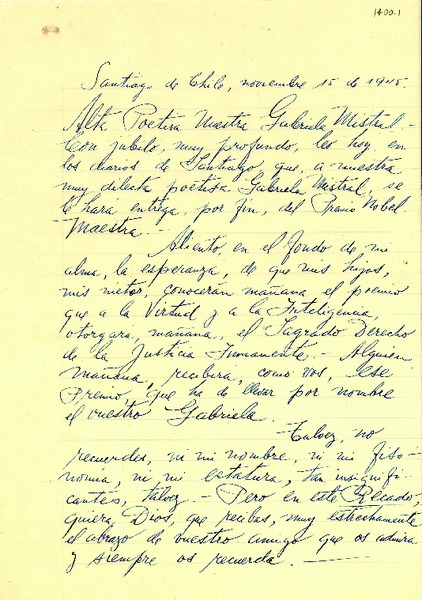 1400.1
Santiago de Chile, noviembre 15 de 1945.
Alta Poetisa Nuestra Gabriela Mistral.-
Con jubilo, muy profundo, leo hoy, en
los diarios de Santiago, que, a nuestra
muy dilecta poetisa Gabriela Mistral, se
le hará entrega, por fin, del Premio Nobel
Maestra.-
Aliento, en el fondo de mi
alma, la esperanza, de que mis hijos,
mis nietos, conocerán mañana el premio
que a la Virtud y a la Inteligencia,
otorgara, mañana, el Sagrado Derecho
de la Justicia Inmanente.- Alguien
mañana, recibira, como vos, ese
Premio, que ha de llevar por nombre
el vuestro Gabriela.
Talvez, no
recuerdes, ni mi nombre, ni mi fiso-
nomia, ni mi estatura, tan insignifi-
cantes, talvez.- Pero en este Recado,
quiera Dios, que recibas, muy estrechamente
el abrazo de vuestro amigo que os admira
y siempre os recuerda.